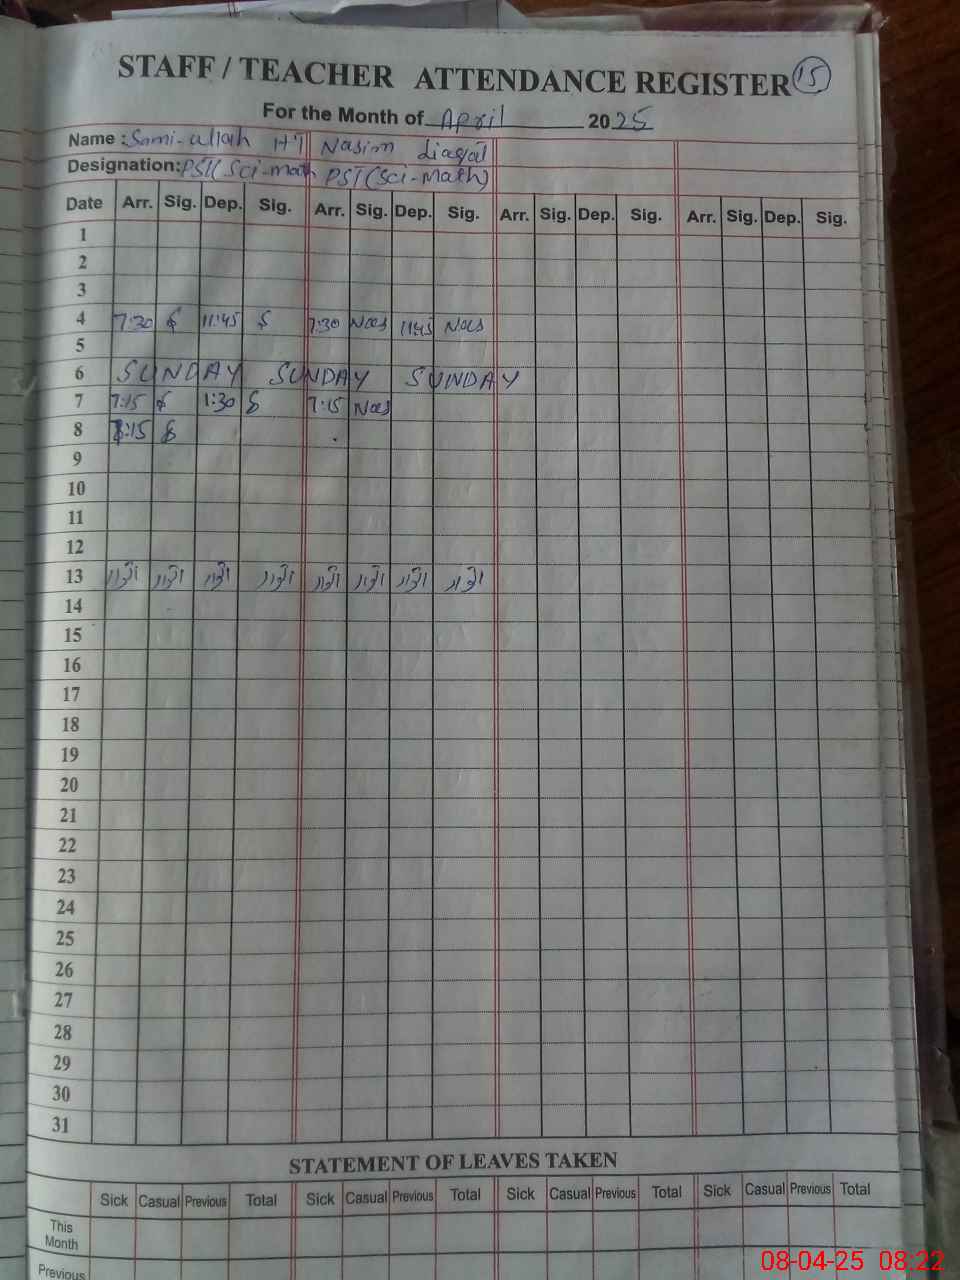 STAFF / TEACHER ATTENDANCE REGISTER 15
For the Month of April 2025
Name : Sami-ullah HT Nasim
Designation: PST (Sci-math PST (Sci-Math)
Date Arr. Sig. Dep. Sig. Arr. Sig. Dep. Sig. Arr. Sig. Dep. Sig. Arr. Sig. Dep. Sig.
1
2
3
4 7:30 11:45 7:30 11:45
5
6 SUNDAY SUNDAY SUNDAY
7 7:15 1:30 7:15
8 8:15
9
10
11
12
13
14
15
16
17
18
19
20
21
22
23
24
25
26
27
28
29
30
31
STATEMENT OF LEAVES TAKEN
Sick Casual Previous Total Sick Casual Previous Total Sick Casual Previous Total Sick Casual Previous Total
This
Month
Previous
08-04-25 08:22